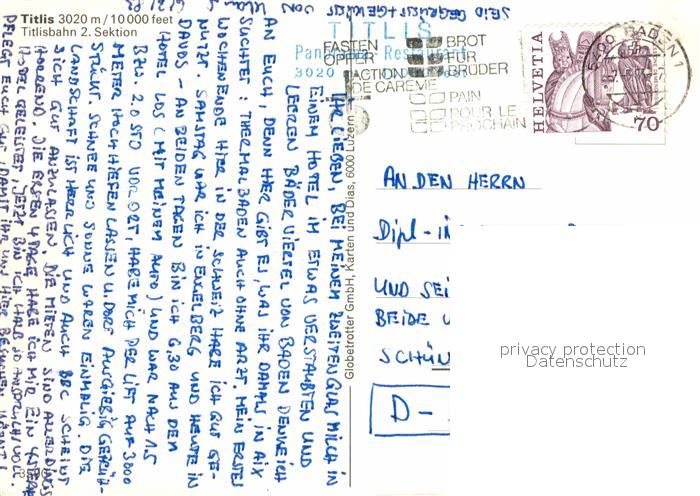 Titlis 3020 m / 10 000 feet
Titlisbahn 2. Sektion
TITLIS
Panorama Restaurant
3020
FASTEN
OPFER
ACTION
DE CARÊME
BROT
FÜR
BRÜDER
PAIN
POUR LE
PROCHAIN
5400 BADEN 1
HELVETIA
70
IHR LIEBEN, BEI MEINEM ZWEITEN GLAS MILCH IN
EINEM HOTEL IM ETWAS VERSTAUBTEN UND
LEEREN BÄDERVIERTEL VON BADEN DENKE ICH
AN EUCH, DENN HIER GIBT ES, WAS IHR DAMALS IN AIX
SUCHTET: THERMALBADEN AUCH OHNE ARZT. MEIN ERSTES
WOCHENENDE HIER IN DER SCHWEIZ HABE ICH GUT GE-
NUTZT SAMSTAG WAR ICH IN ENGELBERG UND HEUTE IN
DAVOS AN BEIDEN TAGEN BIN ICH 6.30 AUS DEM
HOTEL LOS (MIT MEINEM AUTO) UND WAR NACH 1.5
BZW. 2.0 STD VOR ORT, HABE MICH PER LIFT AUF 3000
METER HOCHHIEFEN LASSEN U. DORT AUSGIEBIG GEFRÜH-
STÜCKT. SCHNEE UND SONNE WAREN EINMALIG. DIE
LANDSCHAFT IST HERRLICH UND AUCH BBC SCHEINT
SICH GUT ANZULASSEN. DIE MIETEN SIND ALLERDINGS
HORREND. DIE ERSTEN 4 TAGE HABE ICH MIR EIN
HOTEL GELEISTET, JETZT BIN ICH
PFLEGT EUCH GUT, DAMIT IHR UNS HIER BESUCHEN KÖNNT!
SEID GEGRÜSST + GEKÜSST
VON
Globetrotter GmbH, Karten und Dias, 6000 Luzern
AN DEN HERRN
Dipl-
UND SEI
BEIDE
SCHÜN
D-
privacy protection
Datenschutz